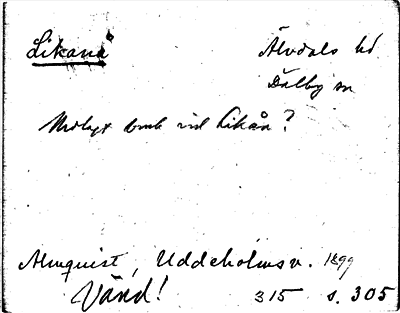 Likanå Älvdals hd
Dalby sn
vid Likån?
Almquist, Uddeholmsv. 1899
Vänd! 315 s. 305